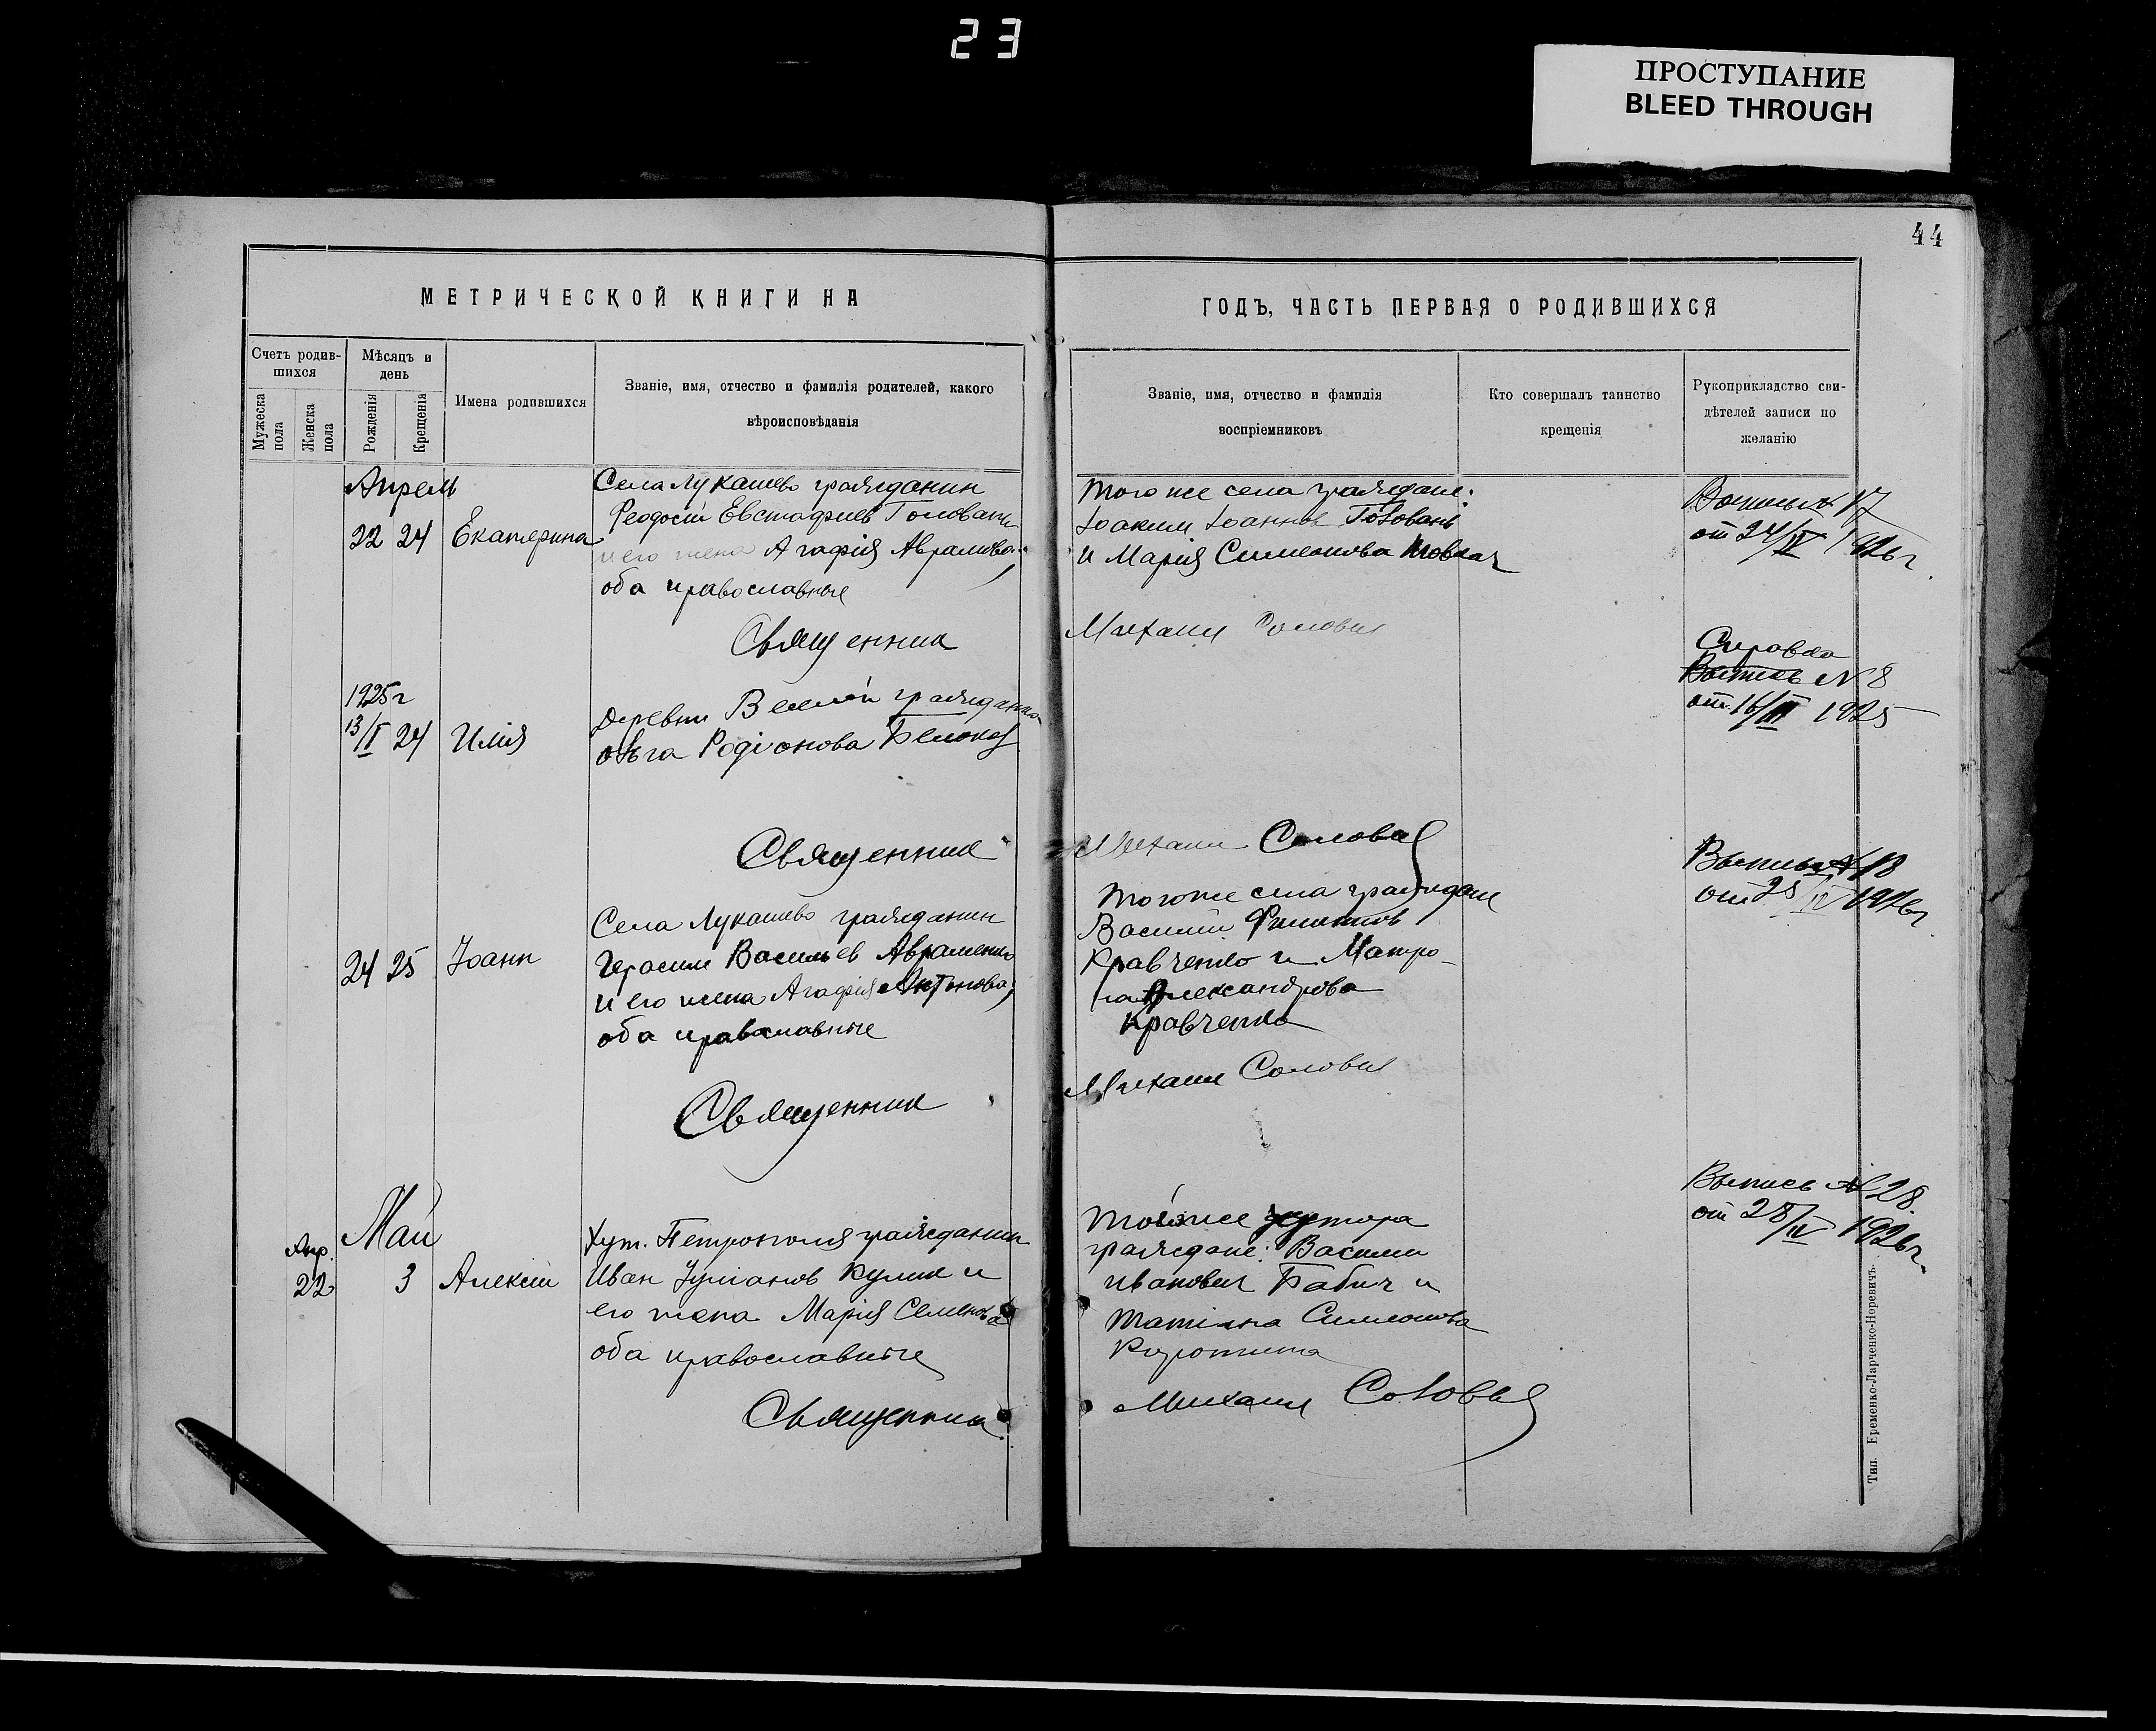 23
ПРОСТУПАНИЕ
BLEED THROUGH
44
МЕТРИЧЕСКОЙ КНИГИ НА
ГОДЪ, ЧАСТЬ ПЕРВАЯ О РОДИВШИХСЯ
Счетъ родив-
шихся
Мужеска пола
Женска пола
Мѣсяцъ и
день
Рожденія
Крещенія
Имена родившихся
Званіе, имя, отчество и фамилія родителей, какого
вѣроисповѣданія
Званіе, имя, отчество и фамилія
воспріемниковъ
Кто совершалъ таинство
крещенія
Рукоприкладство сви-
дѣтелей записи по
желанію
Апрель
22 24 Екатерина
Села Лукашево гражданин
Феодосій Евстафиев
и его жена Агафія Аврамова
оба православные
Того же села граждане:
Іоаким Іоаннов
и Марія Симеонова
17
от 24/IV 1926 г.
Священник
Михаил Соловей
1925 г
13/I 24 Илія
Деревни Веселой гражданка
Ольга Родіонова
Справка
Выпись N 8
от 16/III 1925
Священник
Михаил Соловей
24 25 Іоанн
Села Лукашево гражданин
Герасим Васильев Авраменко
и его жена Агафія Антонова,
оба православные
Того же села граждане
Василий Филиппов
Кравченко и Матро-
на Александрова
Кравченко
Выпись № 18
от 25/IV 1926 г
Священник
Михаил Соловей
Май
Апр.
22 3 Алексій
Хут. Петрополя гражданин
Иван Кулик и
его жена Марія Семенова
оба православные
Того же хутора
граждане: Василий
Иванович Бабич и
Татіана Симеонова
Выпись № 28
от 28/IV 1926 г.
Священник
Михаил Соловей
Тип. Еременко-Ларченко-Норевичъ.